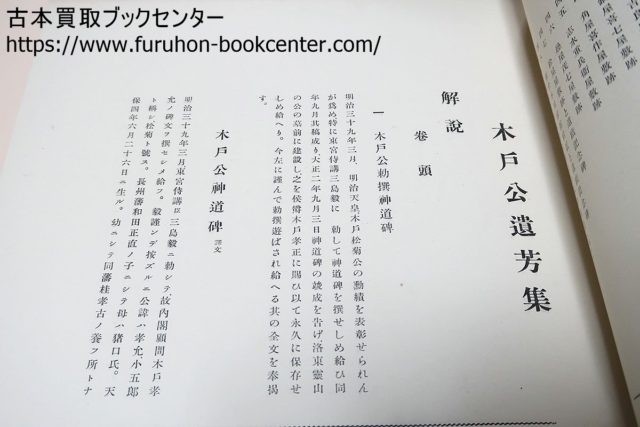 古本買取ブックセンター
https://www.furuhon-bookcenter.com/
木戸公遺芳集
解説
巻頭
一 木戸公勅撰神道碑
明治三十九年三月、明治天皇木戸松菊公の勳績を表彰せられん
が爲め特に東宮侍講三島毅に 勅して神道碑を撰せしめ給ひ同
年九月其稿成り、大正二年九月三日神道碑の竣成を告げ洛東靈山
の公の墓前に建設し之を侯爵木戸孝正に賜ひ以て永久に保存せ
しめ給へり。今左に謹んで勅撰遊ばされ給へる其の全文を奉揭
す。
木戸公神道碑 譯文
明治三十九年三月東宮侍講臣三島毅ニ勅シテ、故内閣顧問木戸孝
允ノ碑文ヲ撰セシメ給フ。毅謹ンデ按ズルニ公諱ハ孝允、小五郎
ト稱シ松菊ト號ス。長州藩和田正直ノ子ニシテ母ハ猪口氏。天
保四年六月二十六日ニ生ル。幼ニシテ同藩桂孝古ノ養フ所トナ